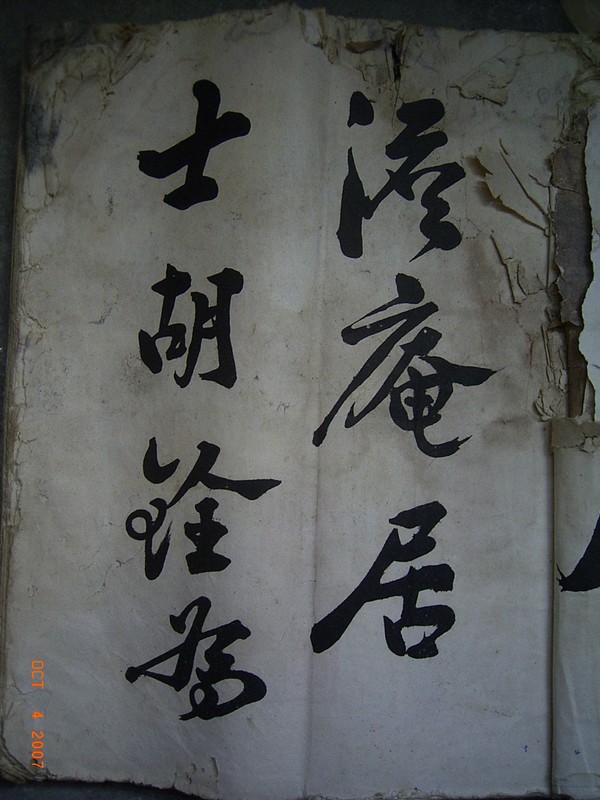 澹庵居
士胡銓為
OCT 4 2007